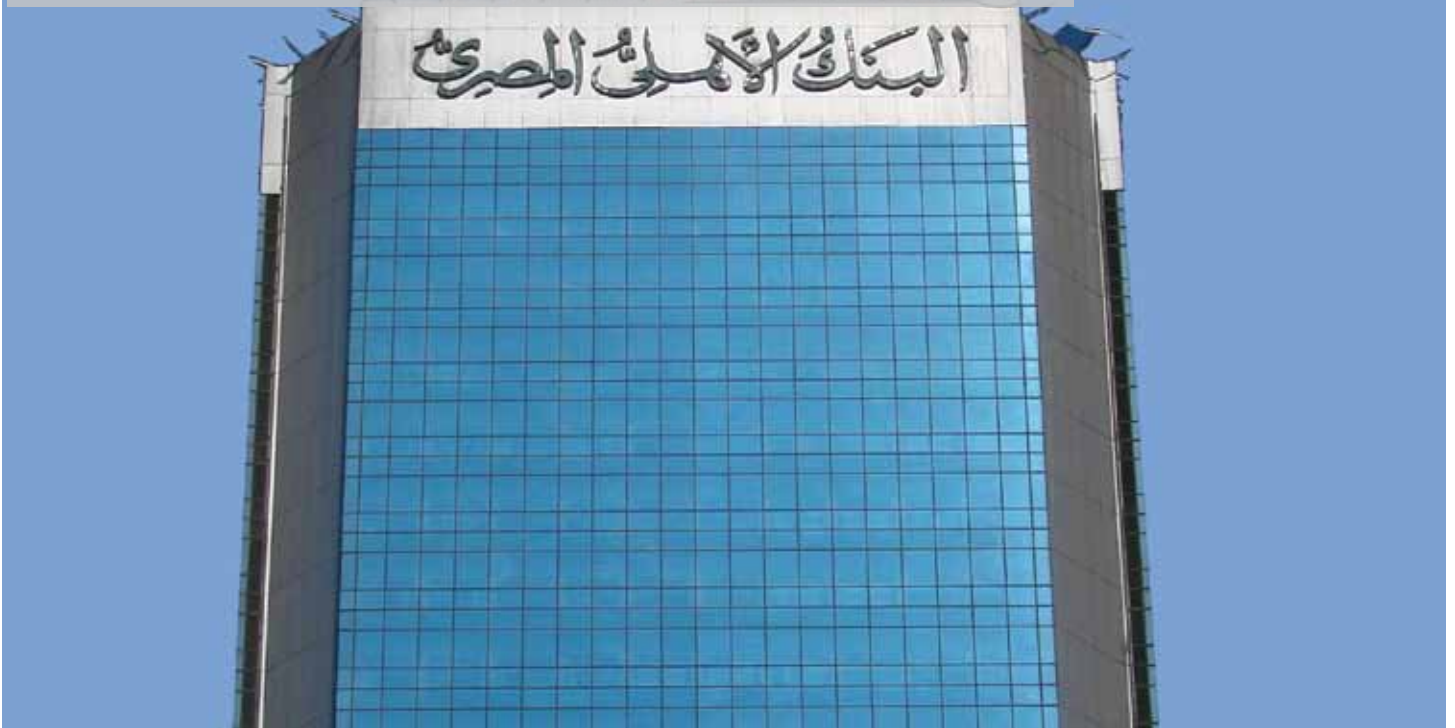 البَنكُ الأَهلىُّ المِصرِىُّ